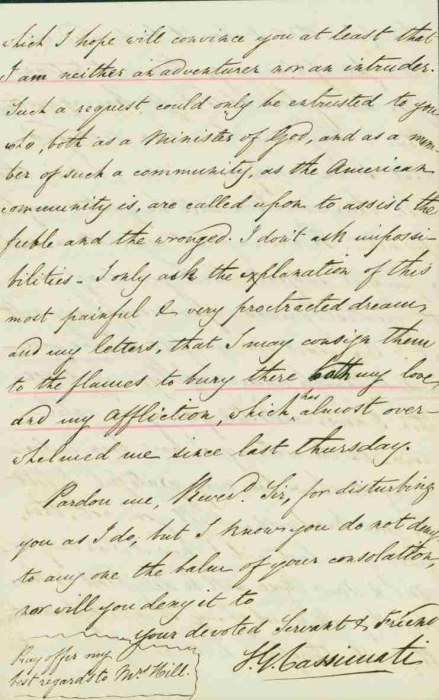 which I hope will convince you at least that
I am neither an adventurer nor an intruder.
Such a request could only be entrusted to you
who, both as a Minister of God, and as a mem-
ber of such a community, as the American
community is, are called upon to assist the
feeble and the wronged. I don't ask impossi-
bilities - I only ask the explanation of this
most painful & very proctracted dream,
and my letters, that I may consign them
to the flames to bury there both my love
and my affliction, which has almost over-
whelmed me since last thursday.
Pardon me, Rever.d Sir, for disturbing
you as I do, but I know you do not deny
to any one the balm of your consolation,
nor will you deny it to
your devoted Servant & Friend
Pray offer my
best regards to Mrs Hill.